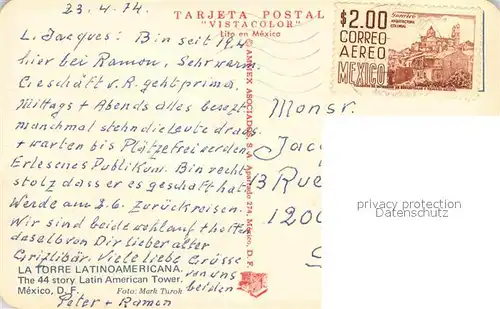 23.4.74.
TARJETA POSTAL
"VISTACOLOR"
Lito en México
L. Jacques: Bin seit 19.4
hier bei Ramon, Sehr warm.
Geschäft v. R. geht prima,
Mittags + Abends alles besetzt
manchmal stehn die Leute draus.
+ warten bis Plätze frei werden.
Erlesenes Publikum. Bin recht
stolz dass er es geschafft hat
Werde am 2.6. zurückreisen.
Wir sind beide wohlauf + hoffen
dasselbe von Dir lieber alter
Viele liebe Grüsse
von uns
beiden
Peter + Ramon
LA TORRE LATINOAMERICANA.
The 44 story Latin American Tower.
México, D. F.
Foto: Mark Turok
© AMMEX ASOCIADOS, S. A. Apartado 274, México, D. F.
$2.00
CORREO
AEREO
MEXICO
Guerrero
ARQUITECTURA
COLONIAL
Monsr.
Jac
13 Rue
1200
privacy protection
Datenschutz